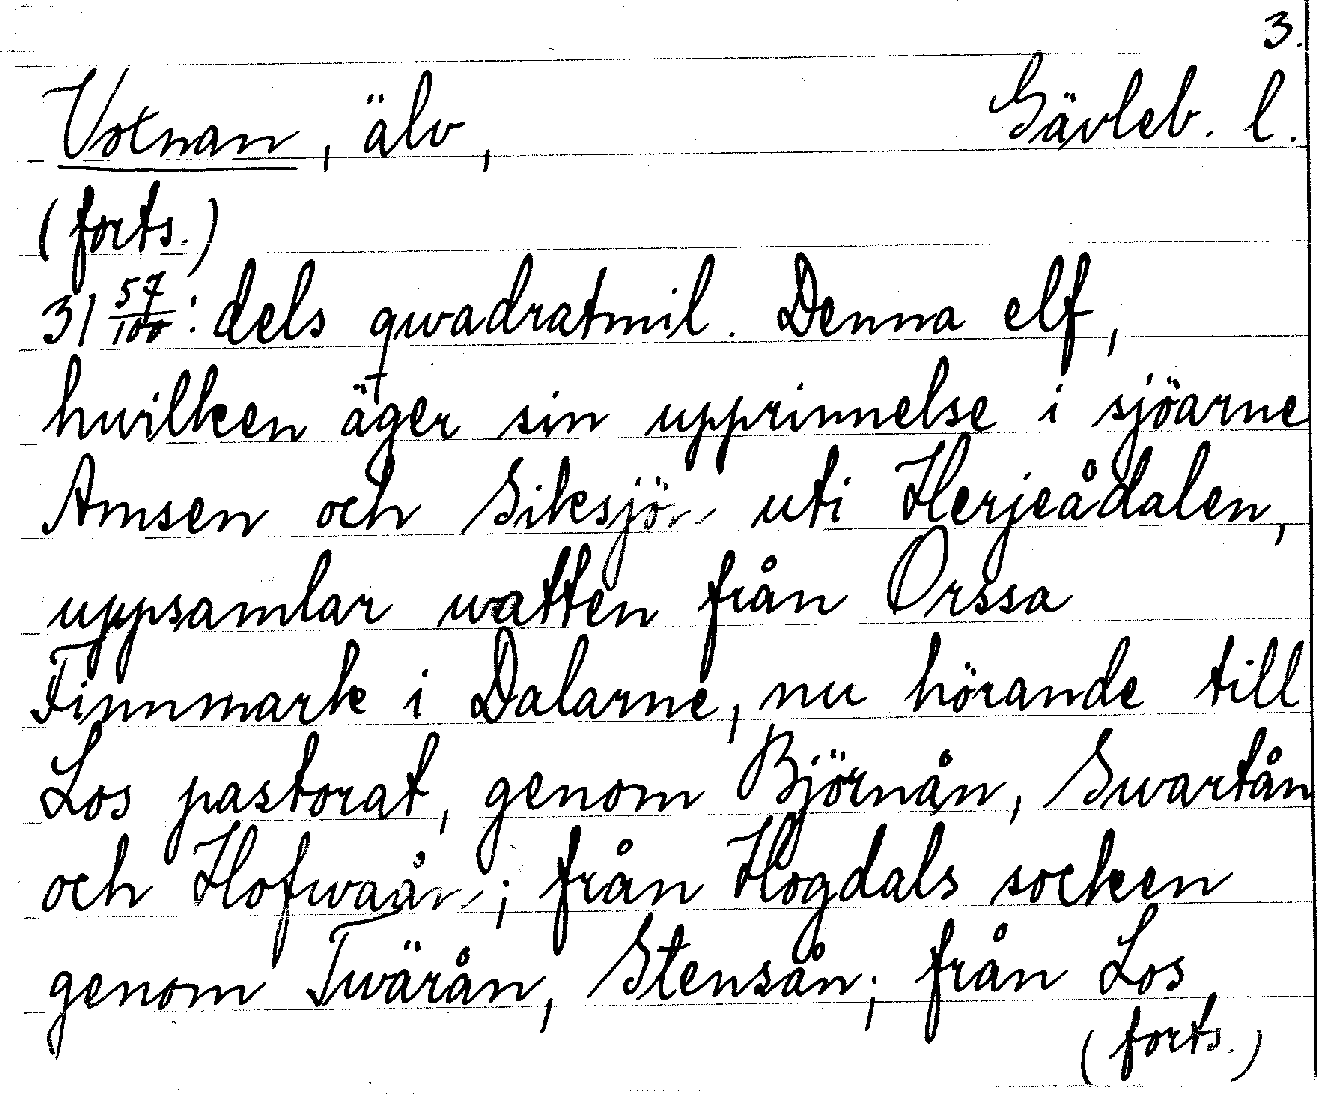 3.
Votnan, älv, Gävleb. l.
(forts.)
31 57/100: dels qwadratmil. Denna elf,
hwilken äger sin upprinnelse i sjöarne
Amsen och Siksjön uti Herjeådalen,
uppsamlar watten från Orssa
Finnmark i Dalarne, nu hörande till
Los pastorat, genom Björnån, Swartån
och Hofwaån; från Hogdals socken
genom Twärån, Stensån; från Los
(forts.)